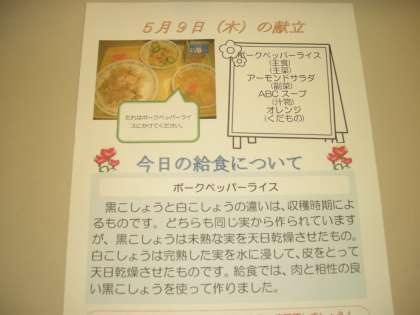 5月9日（木）の献立
ポークペッパーライス
(主食)
(主菜)
アーモンドサラダ
(副菜)
ABCスープ
(汁物)
オレンジ
(くだもの)
たれはポークペッパーライ
スにかけてください。
今日の給食について
ポークペッパーライス
黒こしょうと白こしょうの違いは、収穫時期によ
るものです。どちらも同じ実から作られています
が、黒こしょうは未熟な実を天日乾燥させたもの。
白こしょうは完熟した実を水に浸して、皮をとって
天日乾燥させたものです。給食では、肉と相性の良
い黒こしょうを使って作りました。